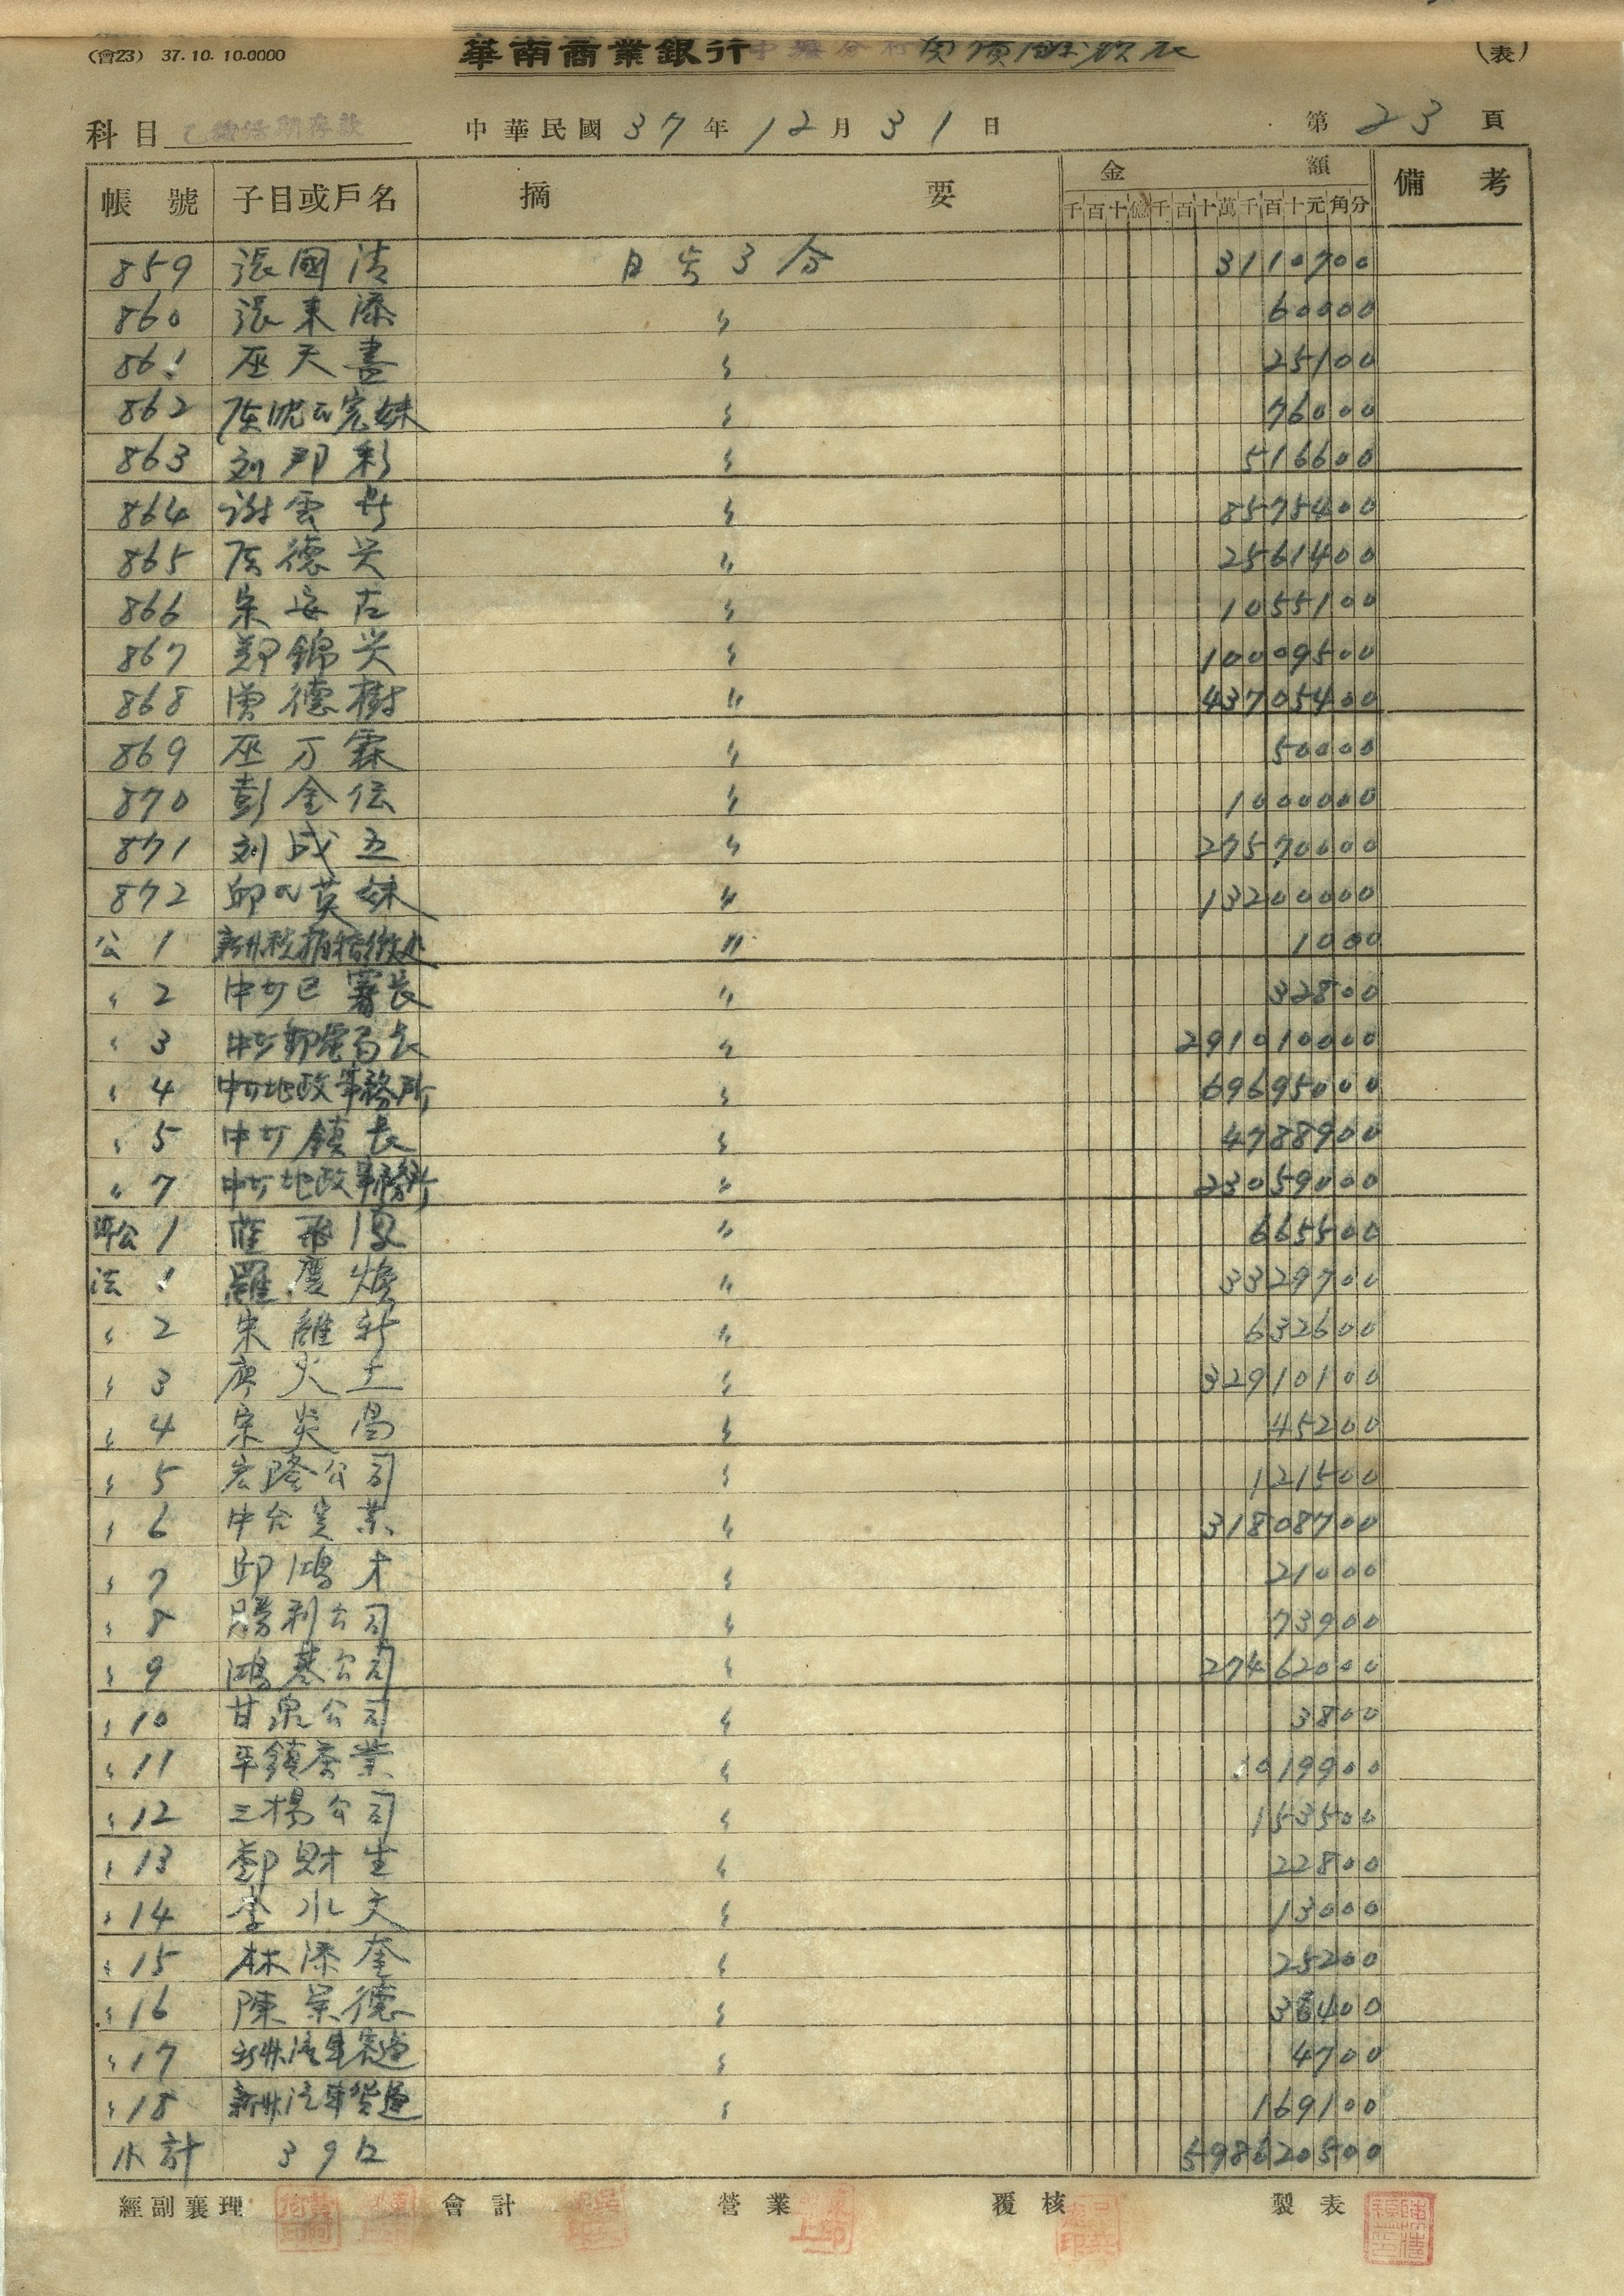 (會23) 37.10.10.0000 華南商業銀行中壢分行 負債餘額表 (表)
科目 乙種活期存款 中華民國37年12月31日 第23頁
帳號 子目或戶名 摘要 金額 備考
千百十億千百十萬千百十元角分
859 張國清 日歩3分 3110700
860 張東添 〃 60000
861 巫天書 〃 25100
862 陈沈氏完妹 〃 76000
863 刘邦彩 〃 516600
864 谢雲 〃 8575400
865 陈德兴 〃 2561400
866 宋安古 〃 1055100
867 鄭錦兴 〃 10009500
868 曾德樹 〃 43705400
869 巫万霖 〃 50000
870 彭金伝 〃 1000000
871 刘成五 〃 27570000
872 邱氏英妹 〃 13200000
公1 新州税捐稽徵处 〃 1000
〃2 中力区署長 〃 32800
〃3 中力郵電局長 〃 291010000
〃4 中力地政事務所 〃 69695000
〃5 中力鎮長 〃 4788900
〃7 中力地政事務所 〃 23059000
準公1 莊飛 〃 665500
法1 羅慶煥 〃 3329700
〃2 宋維新 〃 632600
〃3 廖火土 〃 32910100
〃4 宋炎昌 〃 45200
〃5 宏隆公司 〃 121500
〃6 中台実業 〃 31808700
〃7 邱鴻才 〃 21000
〃8 勝利公司 〃 73900
〃9 鴻基公司 〃 27462000
〃10 甘泉公司 〃 3800
〃11 平鎮茶業 〃 3019900
〃12 三楊公司 〃 153500
〃13 鄭財生 〃 22800
〃14 李水文 〃 13000
〃15 林添奎 〃 25200
〃16 陳崇德 〃 36400
〃17 新州汽車客運 〃 4700
〃18 新州汽車貨運 〃 169100
小計 39口 598620500
經副襄理 會計 營業 覆核 製表